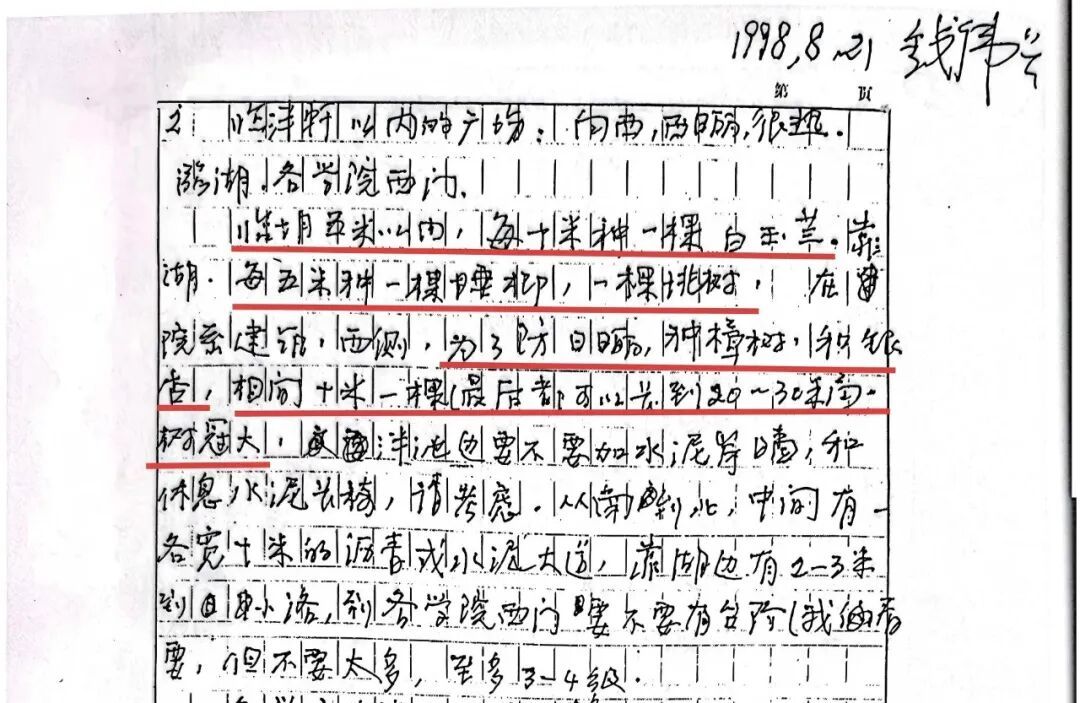 1998.8.21 钱伟长
第 页
2 泮轩以内的广场:向西,西晒,很热.
湖.各学院西门.
临湖平米以内,每十米种一棵白玉兰.靠
湖.每五米种一棵垂柳,一棵桃树,在
院系建筑,西侧,为了防日晒,种樟树,和银
杏,相间十米一棵(最后都可以长到20~30米高.
树冠大,泮池边要不要加水泥岸墙,和
休息水泥长椅,请考虑.从南到北,中间有一
各宽十米的沥青或水泥大道,靠湖边有2-3米
到小路,到各学院西门要不要有台阶(我看
要,但不要太多,至多3-4级.